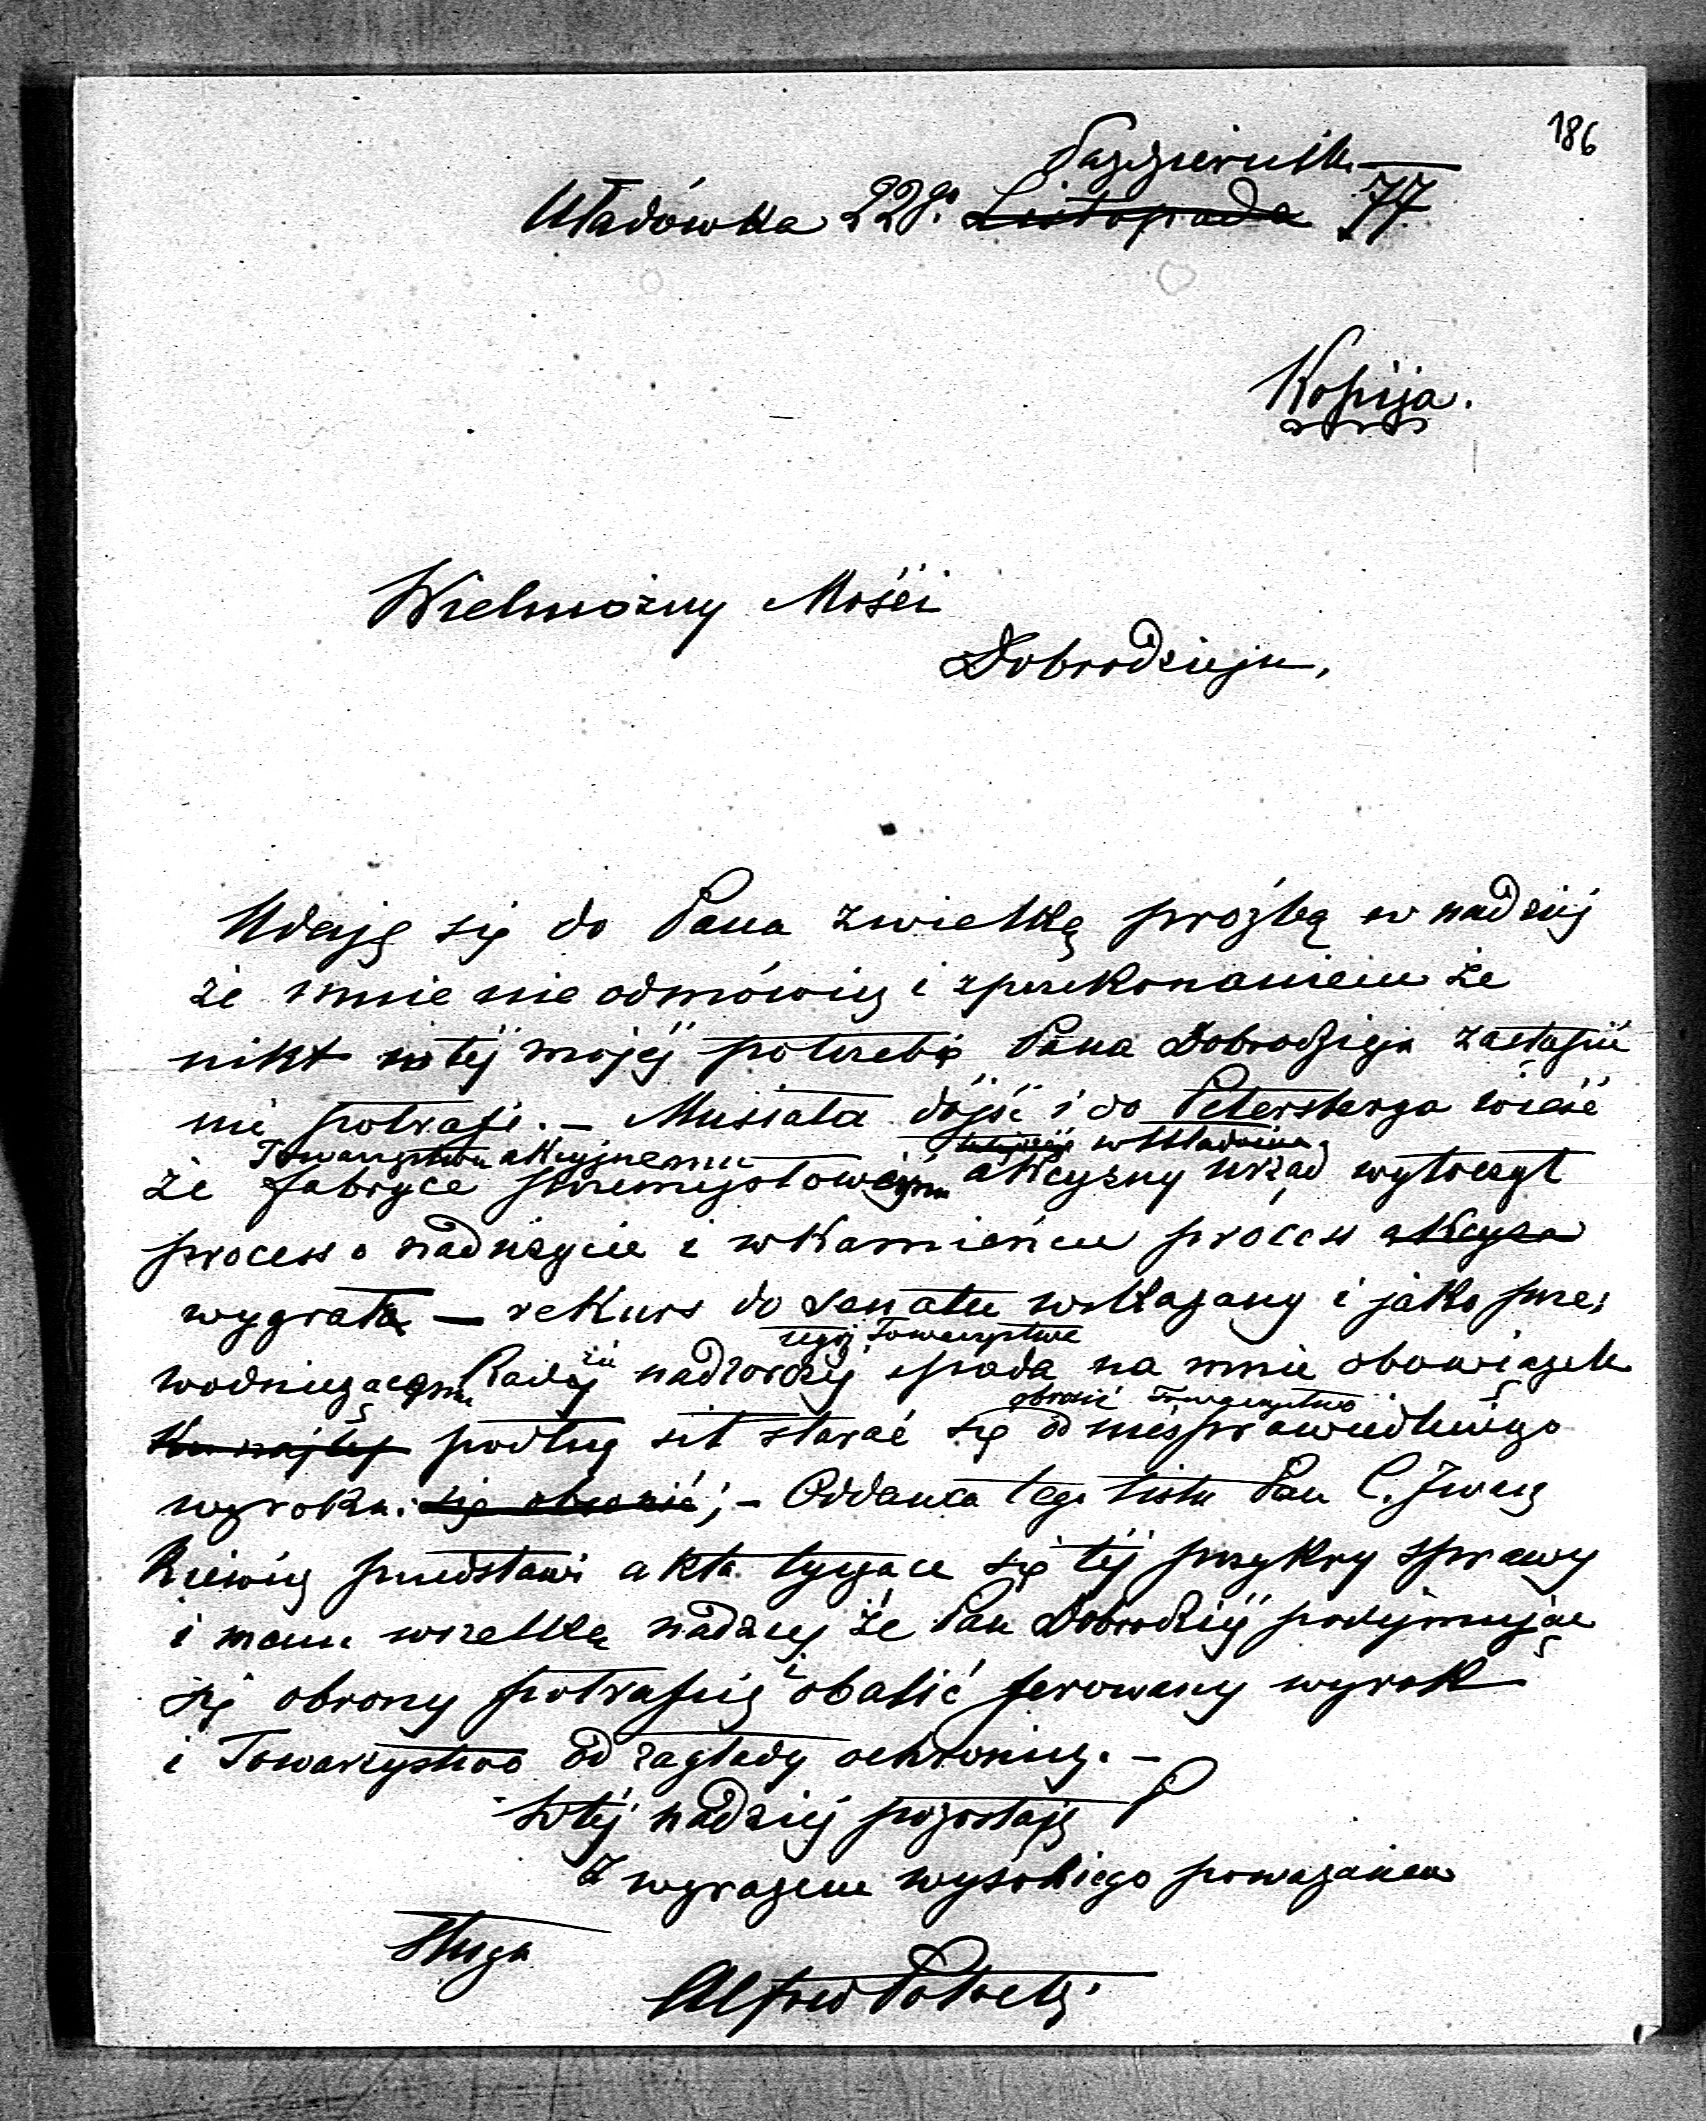 186
Październik
Uładówka 22go Listopada 77.
Kopija.
Wielmożny Mości
Dobrodzieju,
Udaję się do Pana z wielką prożbą w nadziej
że mnie nie odmówisz i z przekonaniem że
nikt w téj mojéj potrzebie Pana Dobrodzieja zastąpić
nie potrafi. — Musiała dojść i do Petersburga wieść
Towarzystwu akcyjnemu w Uładówce
że fabryce przemysłowéj akcyzny urząd wytoczył
process o nadużycie i w Kamieńcu process akcyza
wygrała — rekurs do senatu wskazany i jako prze-
tegoż Towarzystwa
wodniczącym Radzie nadzorczéj spada na mnie obowiązek
obronić Towarzystwo
podług sił starać się od niesprawiedliwégo
wyroku: się obronić; — Oddawca tego listu Pan C. Iwasz
kiewicz przedstawi akta tyczące się téj przykry sprawy
i mam wszelką nadzieję że Pan Dobrodziéj podejmując
się obrony potrafisz obalić ferowany wyrok
i Towarzystwo od zagłady ochronisz. —
W téj nadziej pozostaję
Z wyrazem wysokiego poważania
Sługa
Alfred Potocki